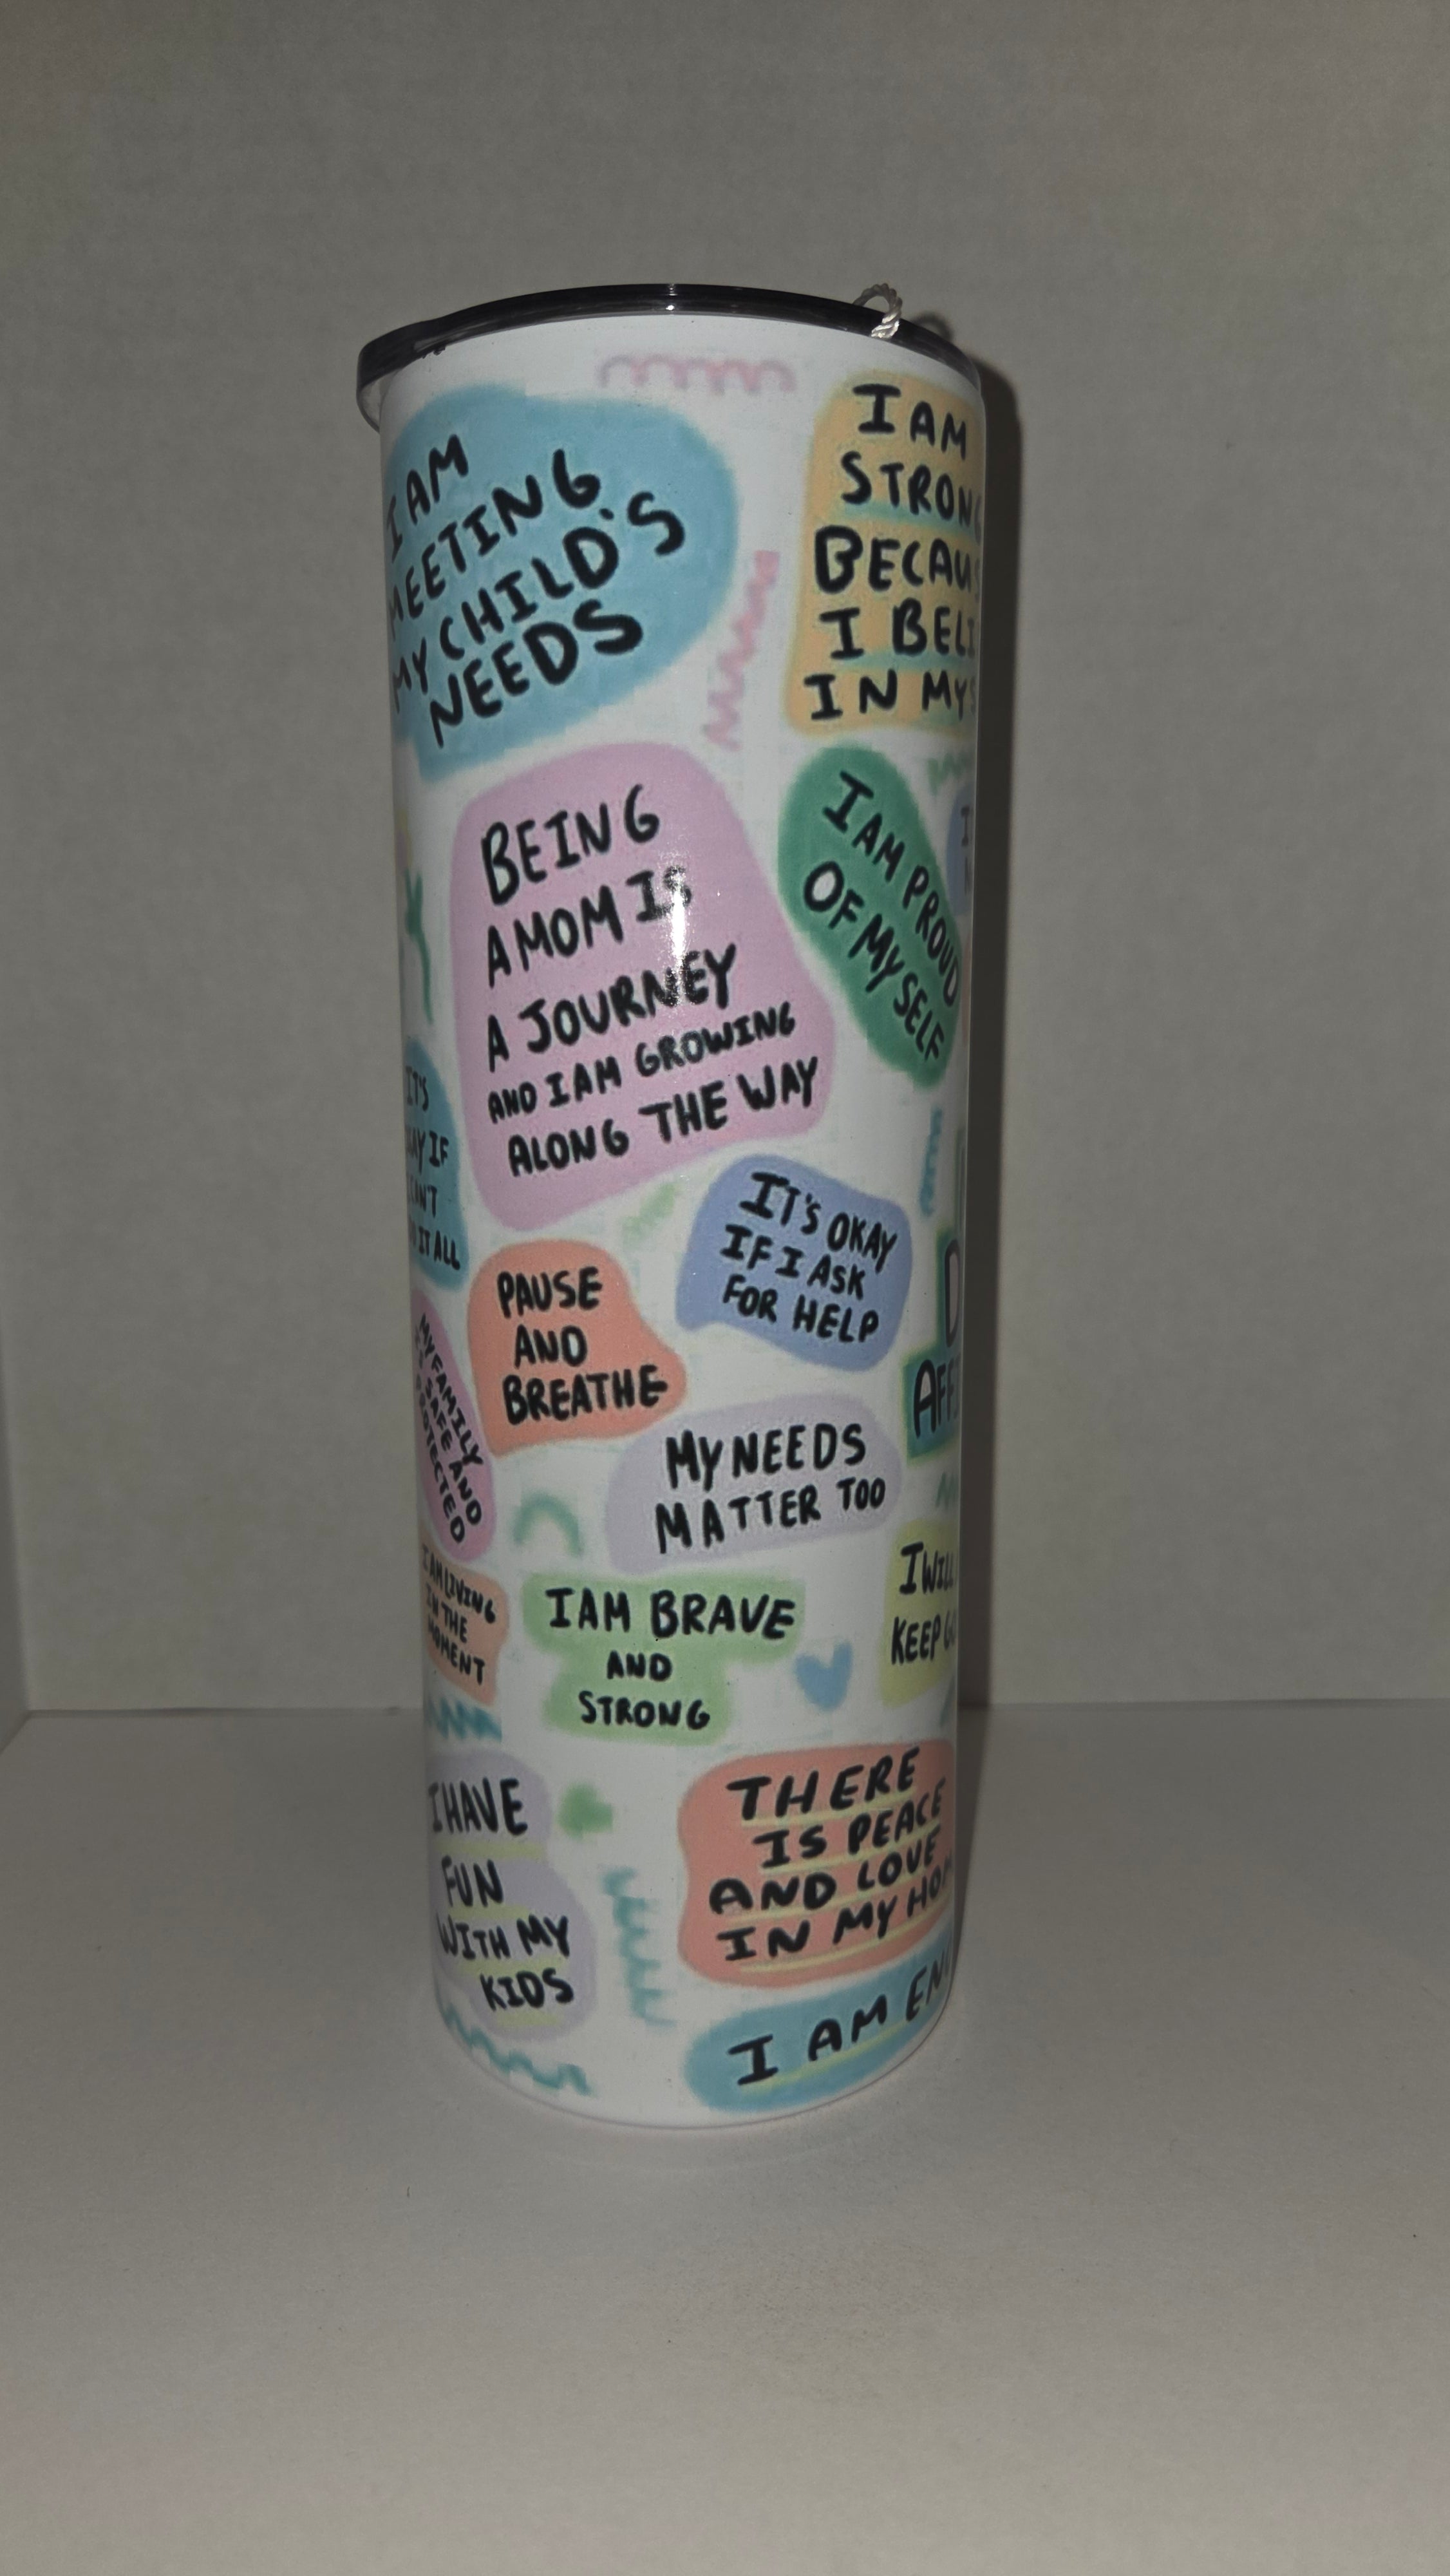 I AM
MEETING
MY CHILD'S
NEEDS
I AM
STRONG
BECAU
I BELI
IN MYS
BEING
A MOM IS
A JOURNEY
AND I AM GROWING
ALONG THE WAY
I AM PROUD
OF MYSELF
IT'S
AY IF
CAN'T
IT ALL
IT'S OKAY
IF I ASK
FOR HELP
PAUSE
AND
BREATHE
D
AFF
MY FAMILY
IS SAFE AND
PROTECTED
MY NEEDS
MATTER TOO
I AM LIVING
IN THE
MOMENT
I AM BRAVE
AND
STRONG
I WILL
KEEP GO
I HAVE
FUN
WITH MY
KIDS
THERE
IS PEACE
AND LOVE
IN MY HOM
I AM EN